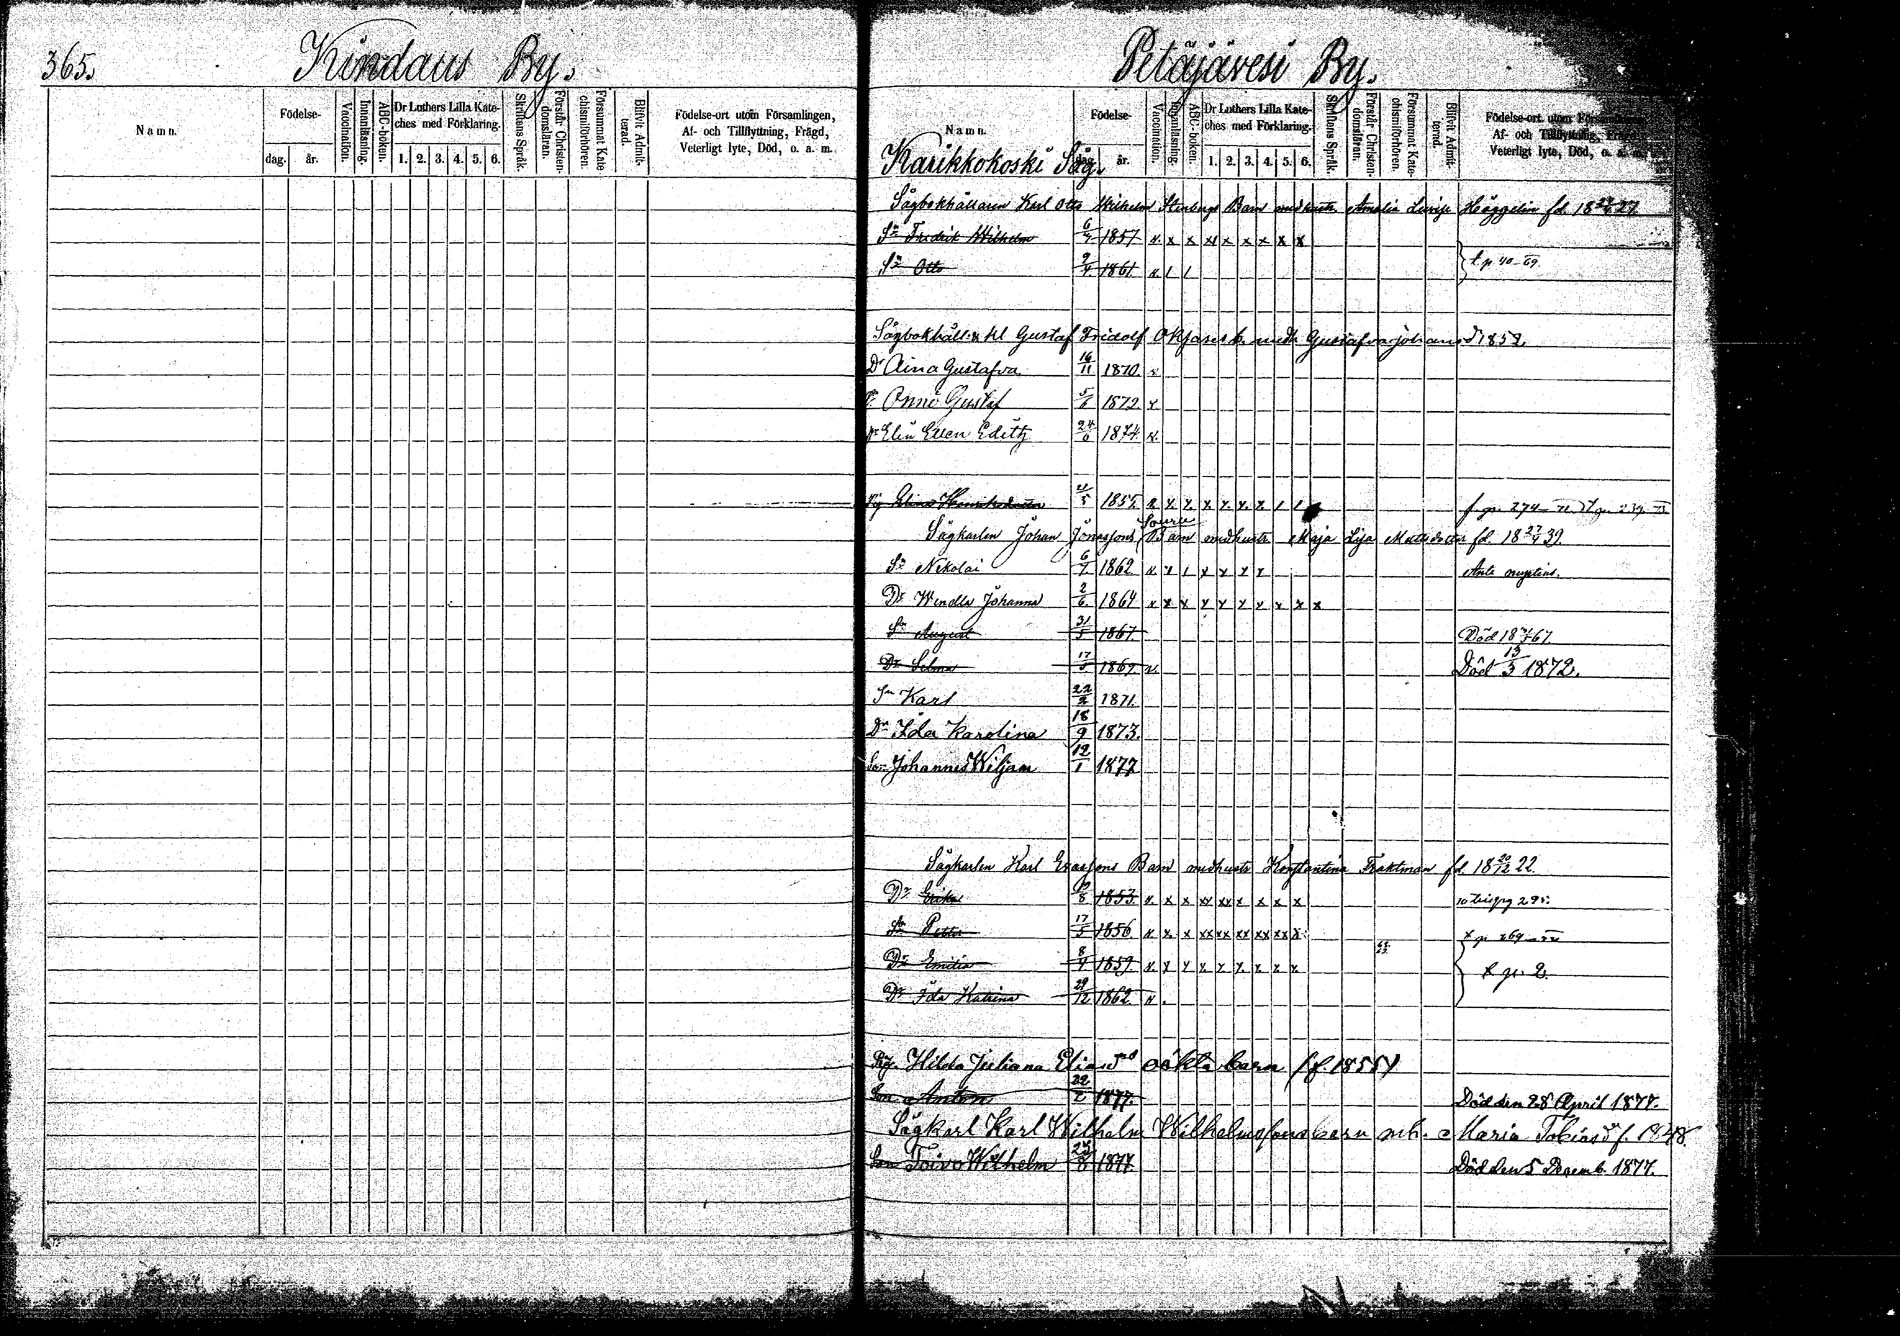 365.
Kindaus By.
Namn.
Födelse-
dag. år.
Vaccination.
Innanläsning.
ABC-boken.
Dr Luthers Lilla Kate-
ches med Förklaring.
1. 2. 3. 4. 5. 6.
Skriftens Språk.
Förstår Christen-
domsläran.
Försummat Kate
chismiförhören.
Blifvit Admit-
terad.
Födelse-ort utom Församlingen,
Af- och Tillflyttning, Frägd,
Veterligt lyte, Död, o. a. m.
Petäjävesi By.
Namn.
Födelse-
dag. år.
Vaccination.
Innanläsning.
ABC-boken.
Dr Luthers Lilla Kate-
ches med Förklaring.
1. 2. 3. 4. 5. 6.
Skriftens Språk.
Förstår Christen-
domsläran.
Försummat Kate-
chismiförhören.
Blifvit Admit-
terad.
Födelse-ort utom Församlingen,
Af- och Tillflyttning, Frägd,
Veterligt lyte, Död, o. a. m.
Karikkokoski Såg.
Sågbokhållaren Karl Otto Wilhelm Stenbergs Barn med hustr. Amalia Lovisa Häggelin fd. 18 27
Sn Fredrik Wilhelm 6/7 1857 v. x x xl x x x x x
Sn Otto 9/4 1861 v. / / t. p. 40-69
Sågbokhåll. Gustaf Fridolf b. med Gustafva Johansdr 1852.
Dr Aina Gustafva 16/11 1870. v
Sn Onni Gustaf 5/6 1872 v
Dr Elin Ellen Edith 24/6 1874 v.
Pig Elina Henriksdotter 21/5 1855
Sågkarlen Johan Jonassons Barn med hustr. Maja Lisa Mattsdotter fd. 18 27/4 39.
Sn Nikolai 6/7 1862 v. x / x x x x Ante nuptias.
Dr Wendla Johanna 2/6. 1864 v x x x x x x x x x
Sn August 31/5 1867. Död 18 67
Dr Selma 17/5 1869. v. Död 13/3 1872.
Sn Karl 22/2 1871.
Dr Ida Karolina 18/9 1873.
Son Johannes Wiljam 12/1 1877
Sågkarlen Karl Erassons Barn med hustr. Konstantina Traktman fd. 18 20/12 22.
Dr Erika 19/8 1853. v. x x xx xx x x x x
Sn Petter 17/5 1856 v x. x xx xx xx xx xx x
Dr Emilia 8/4 1859 v. x x x x x x x x t. p. 2
Dr Ida Katrina 29/12 1862 v.
Pig. Hilda Juliana Eliasdr oäkta barn (f. 1855)
Son Anton 22/2 1877. Död den 28 April 1877.
Sågkarl Karl Wilhelm Wilhelmssons barn m.h. Maria Tobiasdr f. 1848
Son Toivo Wilhelm 1877 Död den 5 Decemb. 1877.